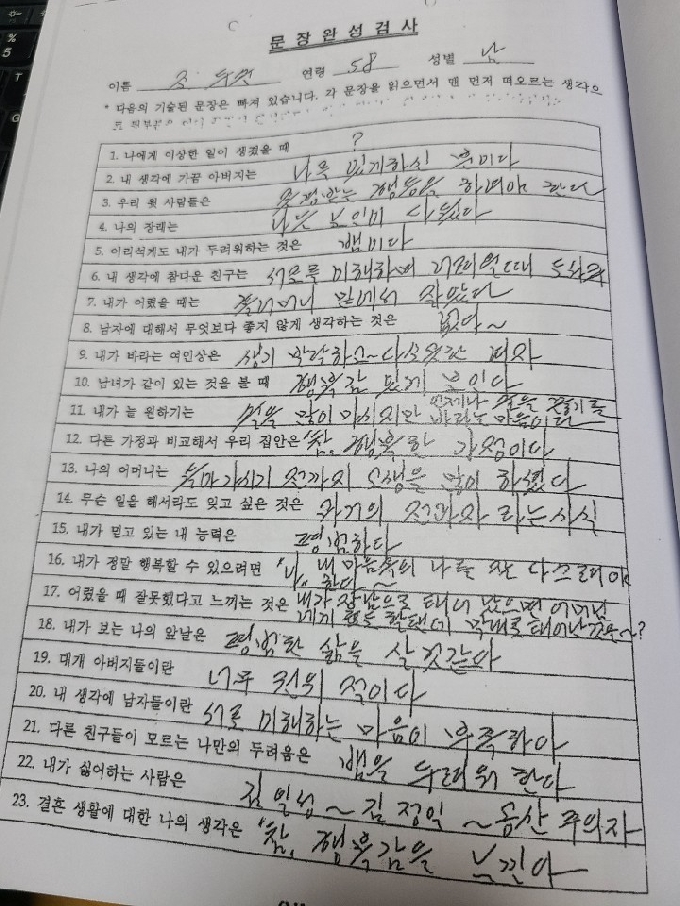 문 장 완 성 검 사
이름 연령 58 성별 남
* 다음의 기술된 문장은 빠져 있습니다. 각 문장을 읽으면서 맨 먼저 떠오르는 생각으
1. 나에게 이상한 일이 생겼을 때 ?
2. 내 생각에 가끔 아버지는 나를 있게하신 분이다
3. 우리 윗 사람들은 행동을 하여야 한다
4. 나의 장래는
5. 어리석게도 내가 두려워하는 것은 뱀이다
6. 내 생각에 참다운 친구는 서로를 이해하며 어려울때
7. 내가 어렸을 때는 홀어머니 밑에서 살았다
8. 남자에 대해서 무엇보다 좋지 않게 생각하는 것은 없다~
9. 내가 바라는 여인상은 생기 발랄하고~다소곳한 여자
10. 남녀가 같이 있는 것을 볼 때 행복감 있게 보인다
11. 내가 늘 원하기는 술을 많이 마시지만 언제나 술을 끊기를 바라는 마음이다
12. 다른 가정과 비교해서 우리 집안은 참, 행복한 가정이다
13. 나의 어머니는 돌아가시기 전까지 고생을 많이 하셨다
14. 무슨 일을 해서라도 잊고 싶은 것은 과거의 전과자 라는사실
15. 내가 믿고 있는 내 능력은 평범하다
16. 내가 정말 행복할 수 있으려면 내 마음속의 나를 잘 다스려야 한다~
17. 어렸을 때 잘못했다고 느끼는 것은 내가 장남으로 태어 났으면 어머님 막내로 태어난것은~?
18. 내가 보는 나의 앞날은 평범한 삶을 살것같다
19. 대개 아버지들이란 너무 권위 적이다
20. 내 생각에 남자들이란 서로 이해하는 마음이 부족하다
21. 다른 친구들이 모르는 나만의 두려움은 뱀을 두려워 한다
22. 내가 싫어하는 사람은 김일성~김정일~공산주의자
23. 결혼 생활에 대한 나의 생각은 "참, 행복감을 느낀다